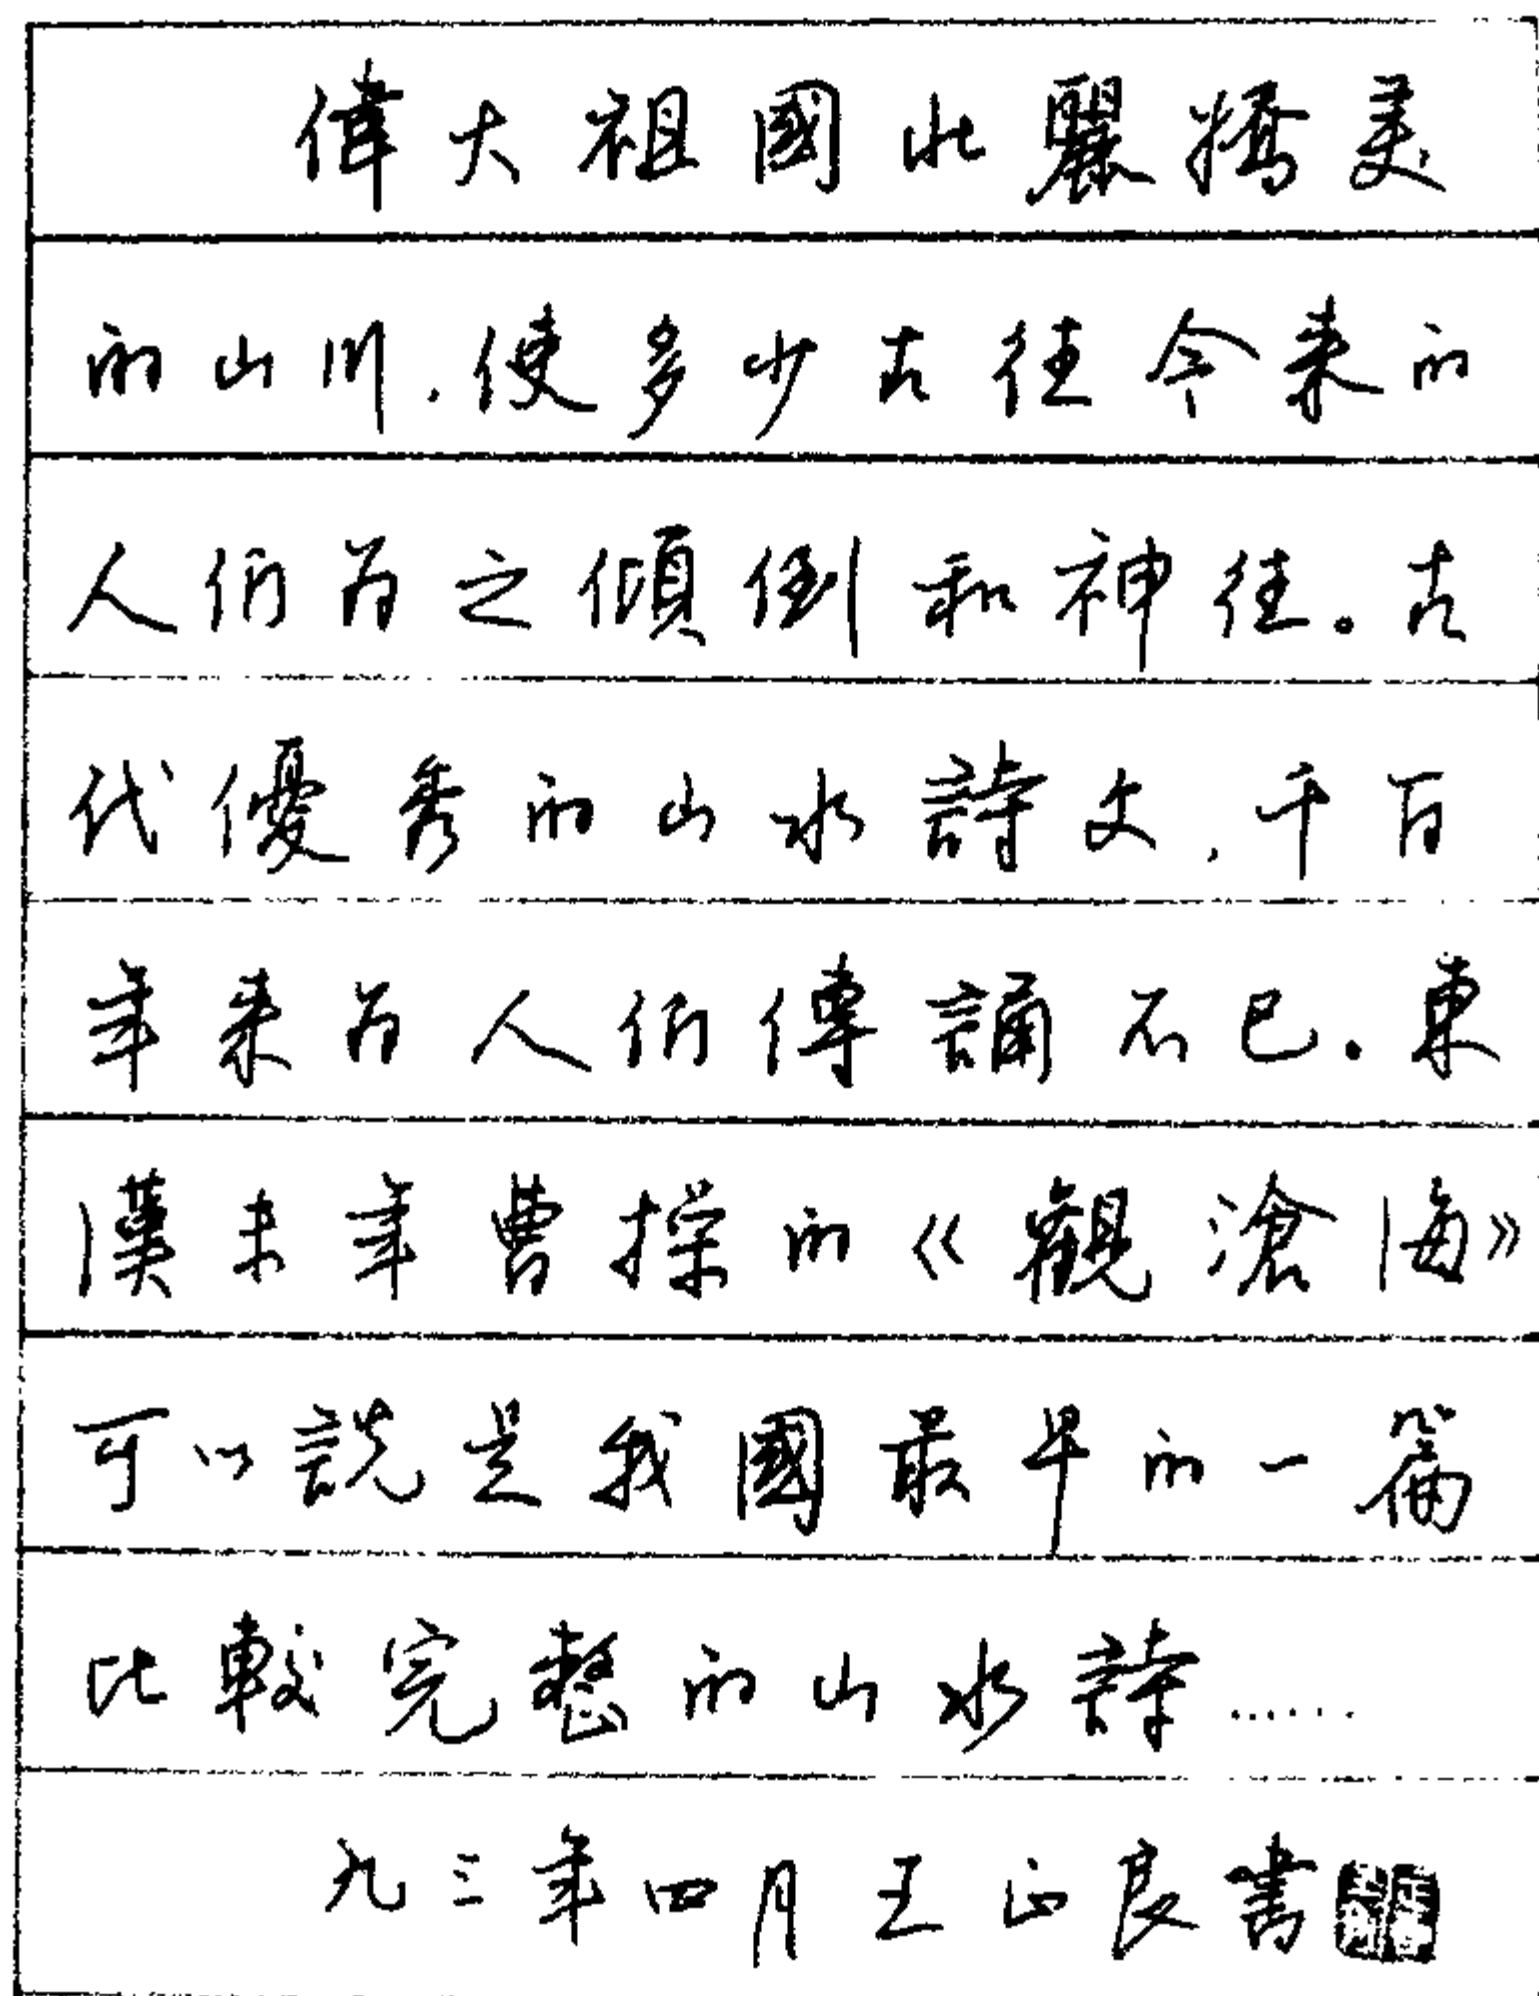 偉大祖國壯麗嬌美
的山川，使多少古往今來的
人们为之傾倒和神往。古
代優秀的山水詩文，千百
年来为人们傳誦不已。東
漢末年曹操的《觀滄海》
可以說是我國最早的一篇
比較完整的山水詩……
九三年四月王正良書